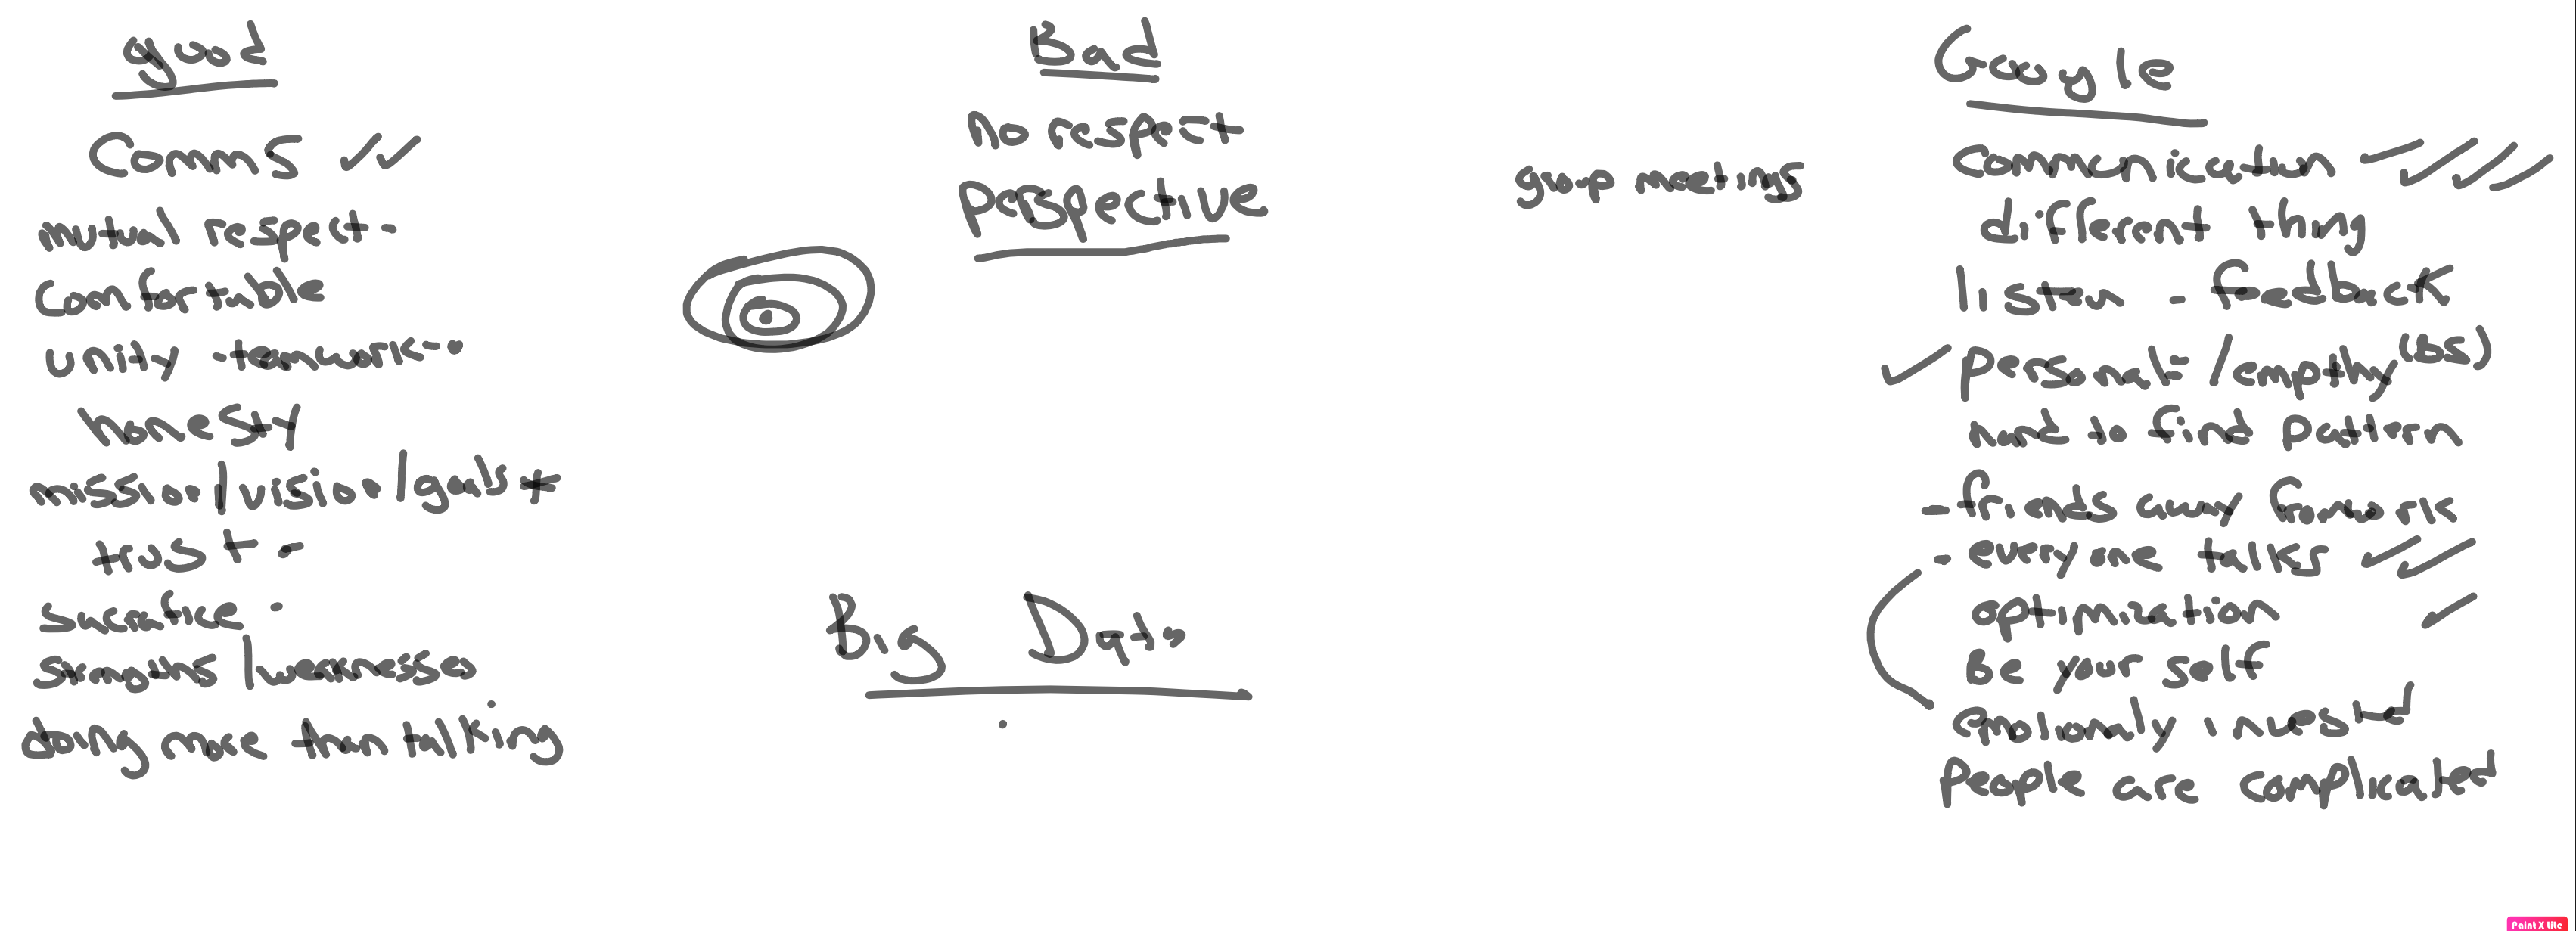 good
Comms ✓✓
mutual respect -
Comfortable
unity - teamwork -
honesty
mission/vision/goals *
trust -
sacrafice -
strengths/weaknesses
doing more than talking
Bad
no respect
Perspective
Big Data
group meetings
Google
Communication ✓✓✓✓
different thing
listen - feedback
✓ personal /empthy (bs)
hard to find pattern
- friends away from work
- everyone talks ✓✓
optimization ✓
Be your self
emotionaly invested
People are complicated
Paint X Lite